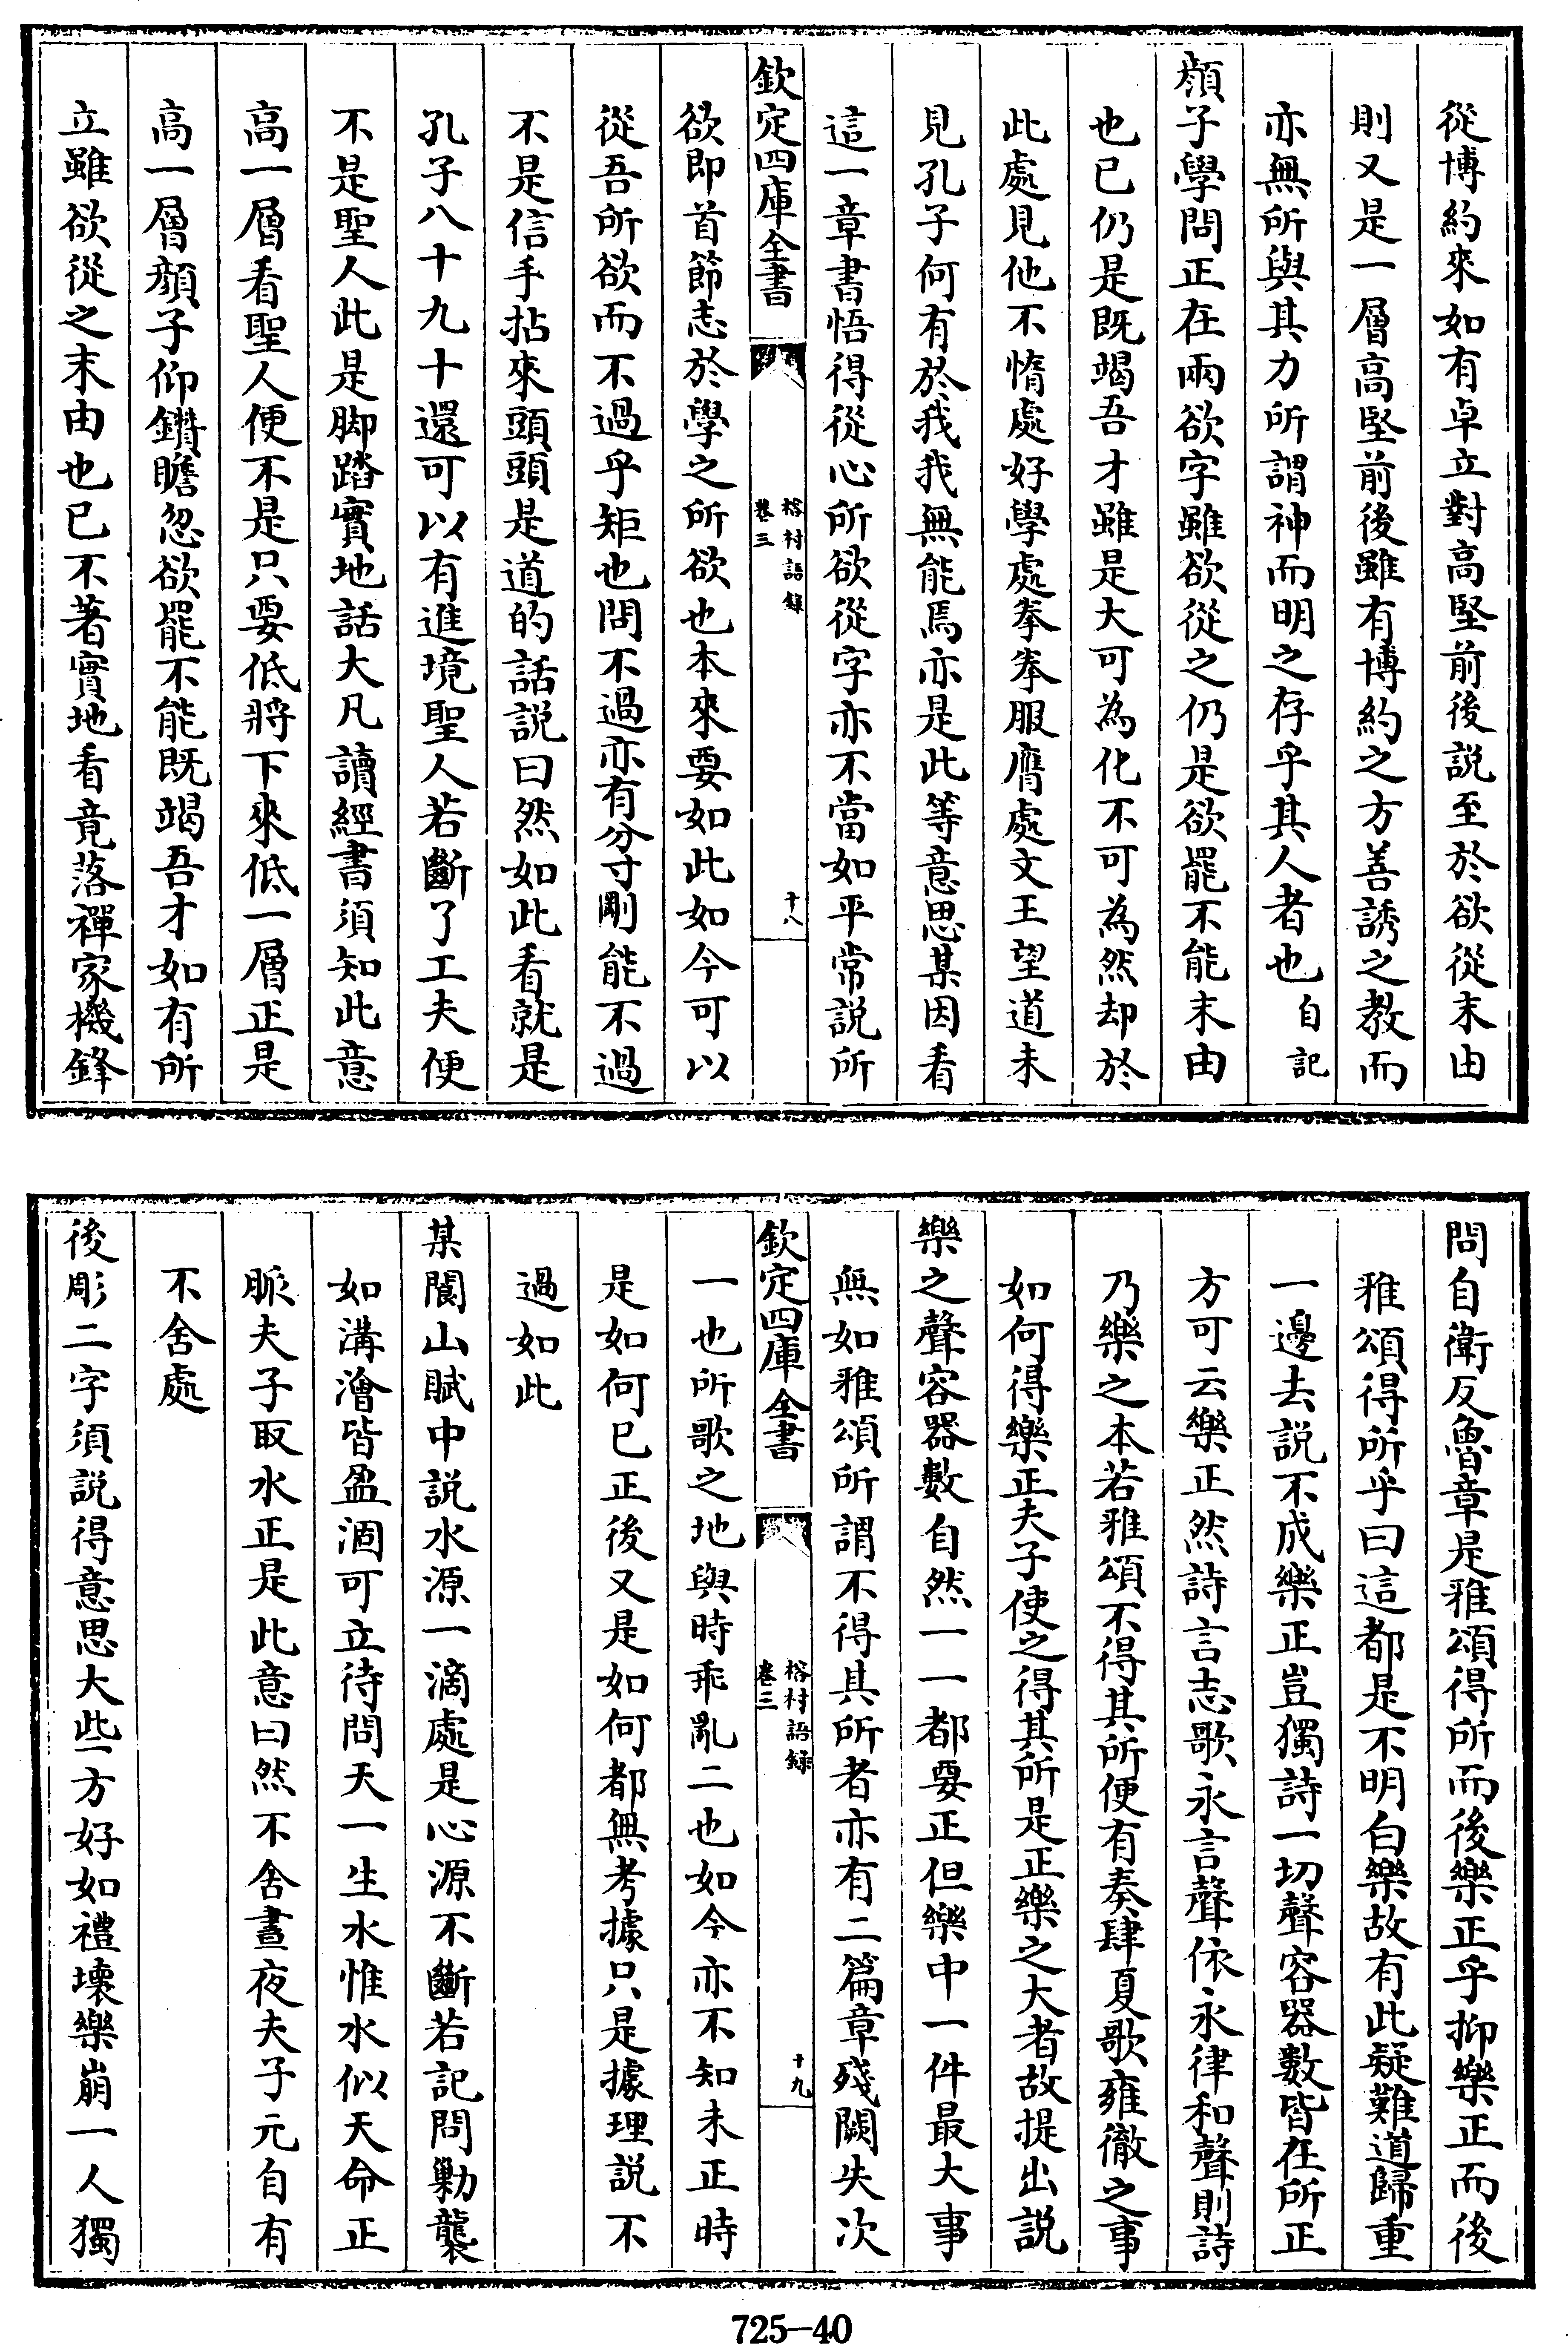 從博約來如有卓立對高堅前後説至於欲從末由
則又是一層高堅前後雖有博約之方善誘之教而
亦無所與其力所謂神而明之存乎其人者也自記
顔子學問正在兩欲字雖欲從之仍是欲罷不能末由
也已仍是既竭吾才雖是大可為化不可為然却於
此處見他不惰處好學處拳拳服膺處文王望道未
見孔子何有於我我無能焉亦是此等意思某因看
這一章書悟得從心所欲從字亦不當如平常説所
欽定四庫全書
榕村語録
卷三
十八
欲即首節志於學之所欲也本來要如此如今可以
從吾所欲而不過乎矩也問不過亦有分寸剛能不過
不是信手拈來頭頭是道的話説曰然如此看就是
孔子八十九十還可以有進境聖人若斷了工夫便
不是聖人此是脚踏實地話大凡讀經書須知此意
高一層看聖人便不是只要低將下來低一層正是
高一層顔子仰鑽瞻忽欲罷不能既竭吾才如有所
立雖欲從之末由也已不著實地看竟落禪家機鋒
問自衛反魯章是雅頌得所而後樂正乎抑樂正而後
雅頌得所乎曰這都是不明白樂故有此疑難道歸重
一邊去説不成樂正豈獨詩一切聲容器數皆在所正
方可云樂正然詩言志歌永言聲依永律和聲則詩
乃樂之本若雅頌不得其所便有奏肆夏歌雍徹之事
如何得樂正夫子使之得其所是正樂之大者故提出説
樂之聲容器數自然一一都要正但樂中一件最大事
無如雅頌所謂不得其所者亦有二篇章殘闕失次
欽定四庫全書
榕村語録
卷三
十九
一也所歌之地與時乖亂二也如今亦不知未正時
是如何已正後又是如何都無考據只是據理説不
過如此
某閬山賦中説水源一滴處是心源不斷若記問勦襲
如溝澮皆盈涸可立待問天一生水惟水似天命正
脈夫子取水正是此意曰然不舍晝夜夫子元自有
不舍處
後彫二字須説得意思大些方好如禮壞樂崩一人獨
725-40